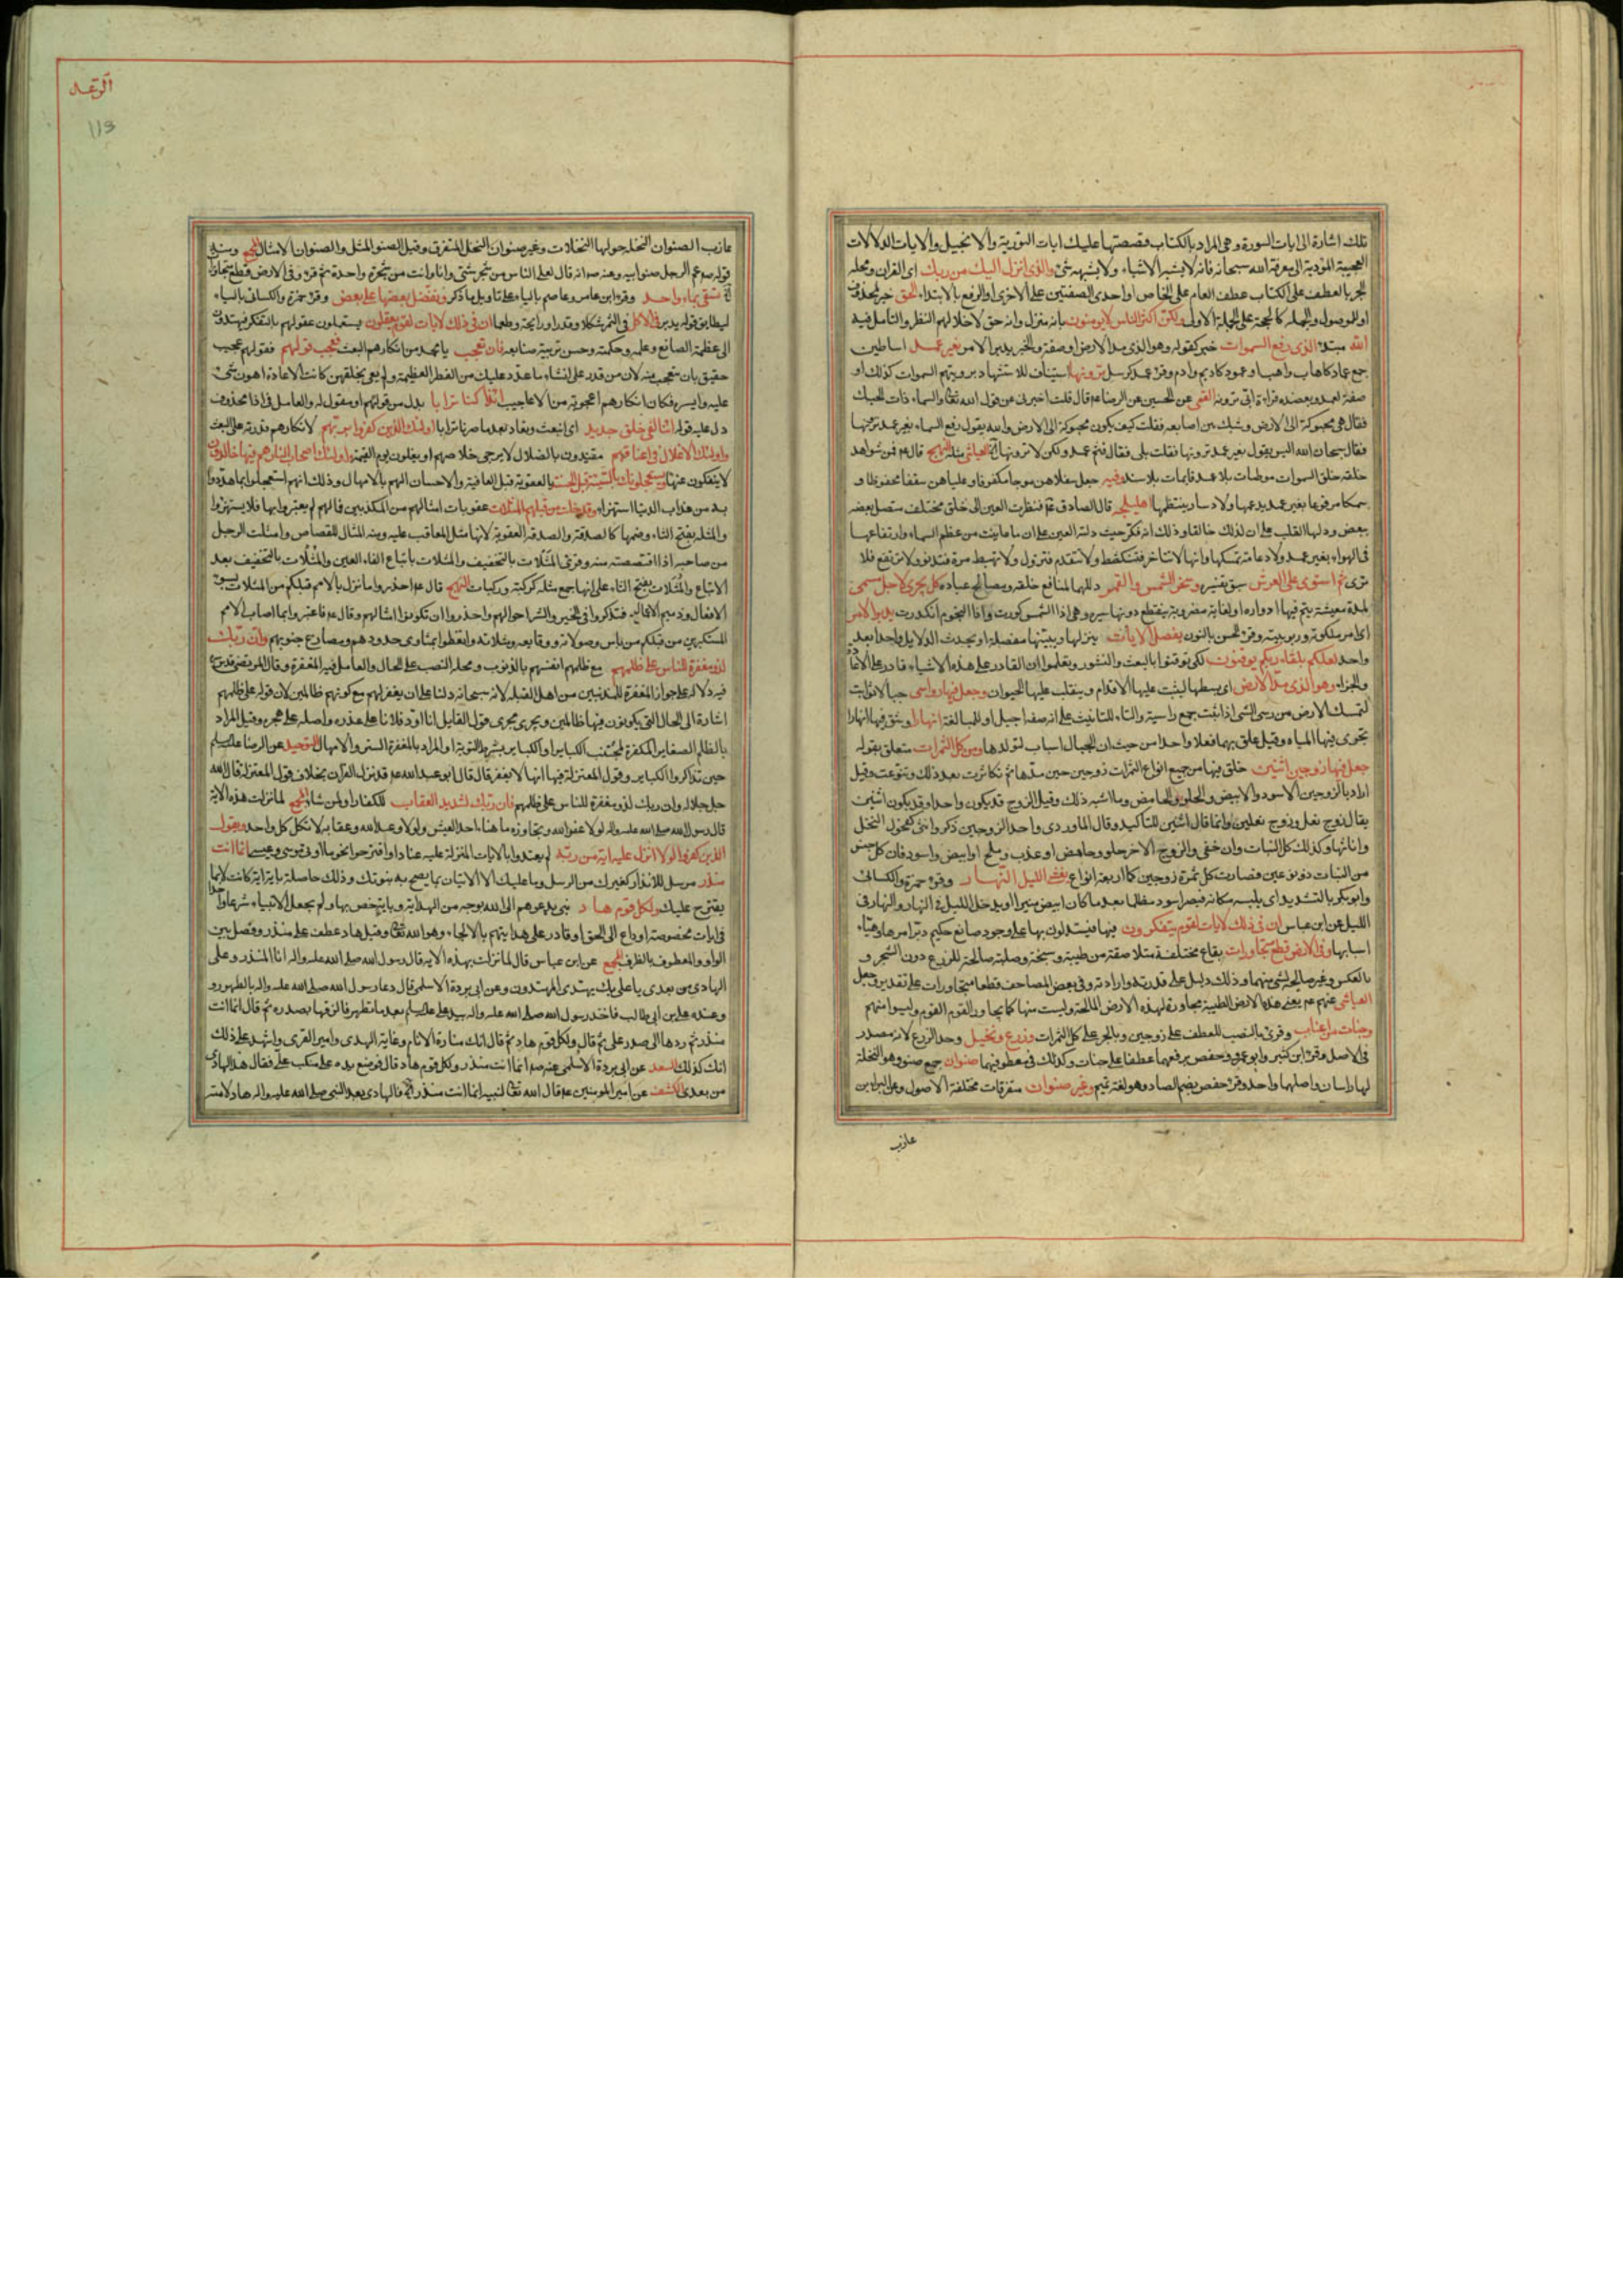 تلك اشارة الى ايات السورة وهى المراد بالكتاب وقصصتها عليك ايات التورية والانجيل والايات الدلالات
العجيبة المؤدية الى معرفة الله سبحانه فانه لا يشبه الاشياء ولا يشبهه شئ والذى انزل اليك من ربك اى القران ومحله
الجر بالعطف على الكتاب عطف العام على الخاص او احدى الصفتين على الاخرى او الرفع بالابتداء الحق خبر لمحذوف
او للموصول والجملة كالحجة على الجملة الاولى ولكن اكثر الناس لا يومنون بانه منزل وانه حق لاخلالهم النظر والتامل فيه
الله مبتدء الذى رفع السموات خبر كقوله وهو الذى مد الارض او صفة والخبر يدبر الامر بغير عمد اساطين
جمع عماد كاهاب واهب او عمود كاديم وادم وقرئ عمد كرسل ترونها استيناف للاستشهاد برويتهم السموات كذلك او
صفة لعمد ويعضده قراءة ابى ترونه القمى عن الحسين عن الرضا ع قال قلت اخبرنى عن قول الله تعالى والسماء ذات الحبك
فقال هى محبوكة الى الارض وشبك بين اصابعه فقلت كيف يكون محبوكة الى الارض والله يقول رفع السماء بغير عمد ترونها
فقال سبحان الله اليس يقول بغير عمد ترونها فقلت بلى فقال فثم عمد ولكن لا ترونها العياشى مثله النهج قال ع فمن شواهد
خلقه خلق السموات موطدات بلا عمد قايمات بلا سند وفيه جعل سفلاهن موجا مكفوفا وعلياهن سقفا محفوظا و
سمكا مرفوعا بغير عمد يدعمها ولا دسار ينتظمها اهليلجة قال الصادق ع فنظرت العين الى خلق مختلف متصل بعضه
ببعض ودلها القلب على ان لذلك خالقا وذلك انه فكر حيث دلته العين على ان ما عاينت من عظم السماء وارتفاعها
فى الهواء بغير عمد ولا دعامة تمسكها وانها لا تتاخر فتنكشط ولا تتقدم فتزول ولا تهبط مرة فتدنو ولا ترتفع فلا
ترى ثم استوى على العرش سبق تفسيره وسخر الشمس والقمر دللهما لمنافع خلقه ومصالح عباده كل يجرى لاجل مسمى
لمدة معينة يتم فيها ادواره او لغاية مضروبة ينقطع دونها سيره وهى اذا الشمس كورت واذا النجوم انكدرت يدبر الامر
اى امر ملكوته وربوبيته وقرئ الحسن بالنون يفصل الايات ينزلها ويبينها مفصلة او يحدث الدلايل واحدا بعد
واحد لعلكم بلقاء ربكم يوقنون لكى توقنوا بالبعث والنشور وتعلموا ان القادر على هذه الاشياء قادر على الاعادة
والجزاء وهو الذى مد الارض اى بسطها ليثبت عليها الاقدام ويتقلب عليها الحيوان وجعل فيها رواسى جبالا ثوابت
لتمسك الارض من رسى الشئ اذا ثبت جمع راسية والتاء للتانيث على انه صفة اجبل او للمبالغة انهارا وشق فيها انهارا
تجرى فيها المياه وقيل علق بهما فعلا واحدا من حيث ان الجبال اسباب لتولدها ومن كل الثمرات متعلق بقوله
جعل فيها زوجين اثنين خلق فيها من جميع انواع الثمرات زوجين حين مدها ثم تكاثرت بعد ذلك وتنوعت وقيل
اراد بالزوجين الاسود والابيض والحلو والحامض وما اشبه ذلك وقيل الزوج قد يكون واحدا وقد يكون اثنين
يقال زوج نعل وزوج نعلين وانما قال اثنين للتاكيد وقال الماوردى واحد الزوجين ذكر وانثى كفحول النخل
واناثها وكذلك كل النبات وان خفى والزوج الاخر حلو وحامض او عذب وملح او ابيض واسود فان كل جنس
من النبات ذو نوعين فصارت كل ثمرة زوجين كما اربعة انواع يغشى الليل النهار وقرئ حمزة والكسائى
وابو بكر بالتشديد اى يلبسه مكانه فيصير اسود مظلما بعد ما كان ابيض منيرا او يدخل الليل فى النهار والنهار فى
الليل عن ابن عباس ان فى ذلك لايات لقوم يتفكرون فيها فيستدلون بها على وجود صانع حكيم دبر امرها وهيأ
اسبابها وفى الارض قطع متجاورات بقاع مختلفة متلاصقة من طيبة وسبخة وصلبة صالحة للزرع دون الشجر و
بالعكس وغير صالحة لشئ منهما وذلك دليل على قدرته وارادته وفى بعض المصاحف قطعا متجاورات على تقدير وجعل
العياشى عنهم ع يعنى هذه الارض الطيبة مجاورة لهذه الارض المالحة وليست منها كما يجاور القوم القوم وليسوا منهم
وجنات من اعناب وقرئ بالنصب للعطف على زوجين وبالجر على كل الثمرات وزرع ونخيل وحد الزرع لانه مصدر
فى الاصل وقرئ ابن كثير وابو عمرو وحفص برفعهما عطفا على جنات وكذلك فى معطوفيهما صنوان جمع صنو وهو النخلة
لها راسان واصلها واحد وقرئ حفص بضم الصاد وهو لغة تميم وغير صنوان متفرقات مختلفة الاصول وعلى البراء بن
عازب
الرعد
113
عازب الصنوان النخلة حولها النخلات وغير صنوان النخل المتفرق وقيل الصنو المثل والصنوان الامثال المجمع وسنه
قوله ص عم الرجل صنو ابيه وعنه ص انه قال لعلى الناس من شجر شتى وانا وانت من شجرة واحدة ثم قرئ وفى الارض قطع متجاورات
الاية تسقى بماء واحد وقرء ابن عامر وعاصم بالياء على تاويل ما ذكر ونفضل بعضها على بعض وقرئ حمزة والكسائى بالياء
ليطابق قوله يدبر فى الاكل فى الثمر شكلا وقدرا ورايحة وطعما ان فى ذلك لايات لقوم يعقلون يستعملون عقولهم بالتفكر فيهتدون
الى عظمة الصانع وعلمه وحكمته وحسن تربية صنايعه فان تعجب يا محمد من انكارهم البعث فعجب قولهم فقولهم عجيب
حقيق بان يتعجب منه لان من قدر على انشاء ما عدد عليك من الفطر العظيمة ولم يعى بخلقهن كانت الاعادة اهون شئ
عليه وايسره فكان انكارهم اعجوبة من الاعاجيب ائذا كنا ترابا بدل من قولهم او مفعول له والعامل فى اذا محذوف
دل عليه قوله ائنا لفى خلق جديد اى انبعث ونعاد بعد ما صرنا ترابا اولئك الذين كفروا بربهم لانكارهم قدرته على البعث
واولئك الاغلال فى اعناقهم مقيدون بالضلال لا يرجى خلاصهم او يغلون يوم القيمة واولئك اصحاب النار هم فيها خالدون
لا ينفكون عنها ويستعجلونك بالسيئة قبل الحسنة بالعقوبة قبل العافية والاحسان اليهم بالامهال وذلك انهم استعجلوا بما هددوا
به من عذاب الدنيا استهزاء وقد خلت من قبلهم المثلات عقوبات امثالهم من المكذبين فما لهم لم يعتبروا بها فلا يستهزؤا
والمثلة بفتح الثاء وضمها كالصدقة والصدقة العقوبة لانها مثل المعاقب عليه ومنه المثال للقصاص وامثلت الرجل
من صاحبه اذا اقتصصته منه وقرئ المثلات بالتخفيف والمثلات باتباع الفاء العين والمثلات بالتخفيف بعد
الاتباع والمثلات بفتح الثاء على انها جمع مثلة كركبة وركبات النهج قال ع احذروا ما نزل بالامم قبلكم من المثلات بسوء
الافعال وذميم الاعمال فتذكروا فى الخير والشر احوالهم واحذروا ان تكونوا امثالهم وقال ع فاعتبروا بما اصاب الامم
المستكبرين من قبلكم من باس وصولاته ووقايعه ومثلاته واتعظوا بمثاوى خدودهم ومصارع جنوبهم وان ربك
لذو مغفرة للناس على ظلمهم مع ظلمهم انفسهم بالذنوب ومحله النصب على الحال والعامل فيه المغفرة وقال المرتضى قدس
فيه دلالة على جواز المغفرة للمذنبين من اهل القبلة لانه سبحانه دلنا على ان يغفر لهم مع كونهم ظالمين لان قوله على ظلمهم
اشارة الى الحال التى يكونون فيها ظالمين ويجرى مجرى قول القايل انا اود فلانا على غدره واصله على هجره وقيل المراد
بالظلم الصغاير المكفرة لمجتنب الكباير او الكباير بشرط التوبة او المراد بالمغفرة الستر والامهال التوحيد عن الرضا عليه السلم
حين تذاكروا الكباير وقول المعتزلة فيها انها لا يغفر قال قال ابو عبد الله ع قد نزل القران بخلاف قول المعتزلة قال الله
جل جلاله وان ربك لذو مغفرة للناس على ظلمهم فان ربك لشديد العقاب للكفار او لمن شاء المجمع لما نزلت هذه الاية
قال رسول الله صلى الله عليه واله لولا عفو الله وتجاوزه ما هنأ احد العيش ولولا وعيد الله وعقابه لاتكل كل واحد ويقول
الذين كفروا لولا انزل عليه اية من ربه لم يعتدوا بالايات المنزلة عليه عنادا واقترحوا نحو ما اوتى موسى وعيسى انما انت
منذر مرسل للانذار كغيرك من الرسل وما عليك الا الاتيان بما يصح به نبوتك وذلك حاصلة باية اية كانت لا بما
يقترح عليك ولكل قوم هاد نبى يدعوهم الى الله بوجه من الهداية وباية خص بها ولم يجعل الانبياء شرعا واحدا
فى ايات مخصوصة او داع الى الحق او قادر على هدايتهم بالالجاء وهو الله تعالى وقيل هاد عطف على منذر وفصل بين
الواو والمعطوف بالظرف المجمع عن ابن عباس قال لما نزلت بهذه الاية قال رسول الله صلى الله عليه واله انا المنذر وعلى
الهادى من بعدى يا على بك يهتدى المهتدون وعن ابى بردة الاسلمى قال دعا رسول الله صلى الله عليه واله بالطهور و
وعنده على بن ابى طالب فاخذ رسول الله صلى الله عليه واله بيد على عليه السلم بعد ما تطهر فالزقها بصدره ثم قال انما انت
منذر ثم ردها الى صدر على ثم قال ولكل قوم هاد ثم قال انك منارة الانام وغاية الهدى وامير القرى واشهد على ذلك
انك كذلك السعد عن ابى بردة الاسلمى عنه ص انما انت منذر ولكل قوم هاد قال فوضع يده على منكب على فقال هذا الهادى
من بعدى الكشف عن امير المومنين ع قال الله تعالى لنبيه انما انت منذر الاية فالهادى بعد النبى صلى الله عليه واله هاد لامته